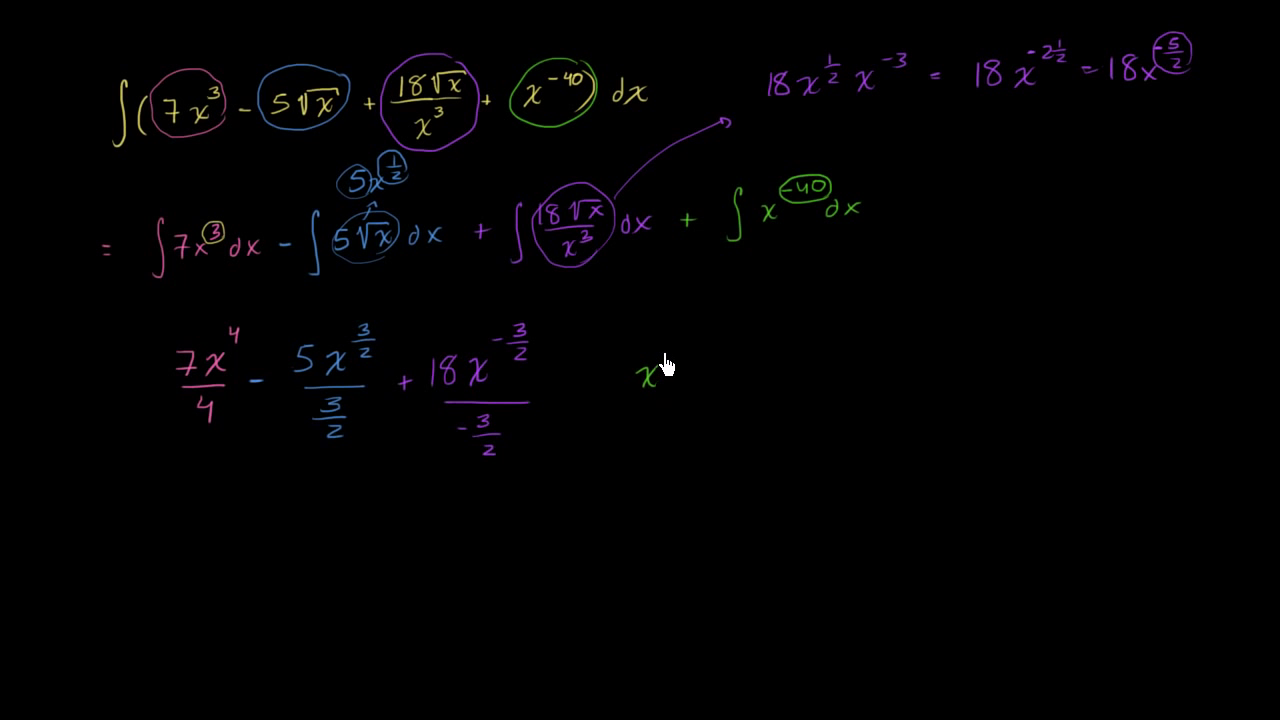 ∫(7x³ - 5√x + 18√x/x³ + x⁻⁴⁰) dx
18x^{1/2} x⁻³ = 18x^{-2 1/2} = 18x^{-5/2}
5x^{1/2}
= ∫7x³dx - ∫5√x dx + ∫18√x/x³ dx + ∫x⁻⁴⁰dx
7x⁴/4 - 5x^{3/2}/(3/2) + 18x^{-3/2}/(-3/2) x